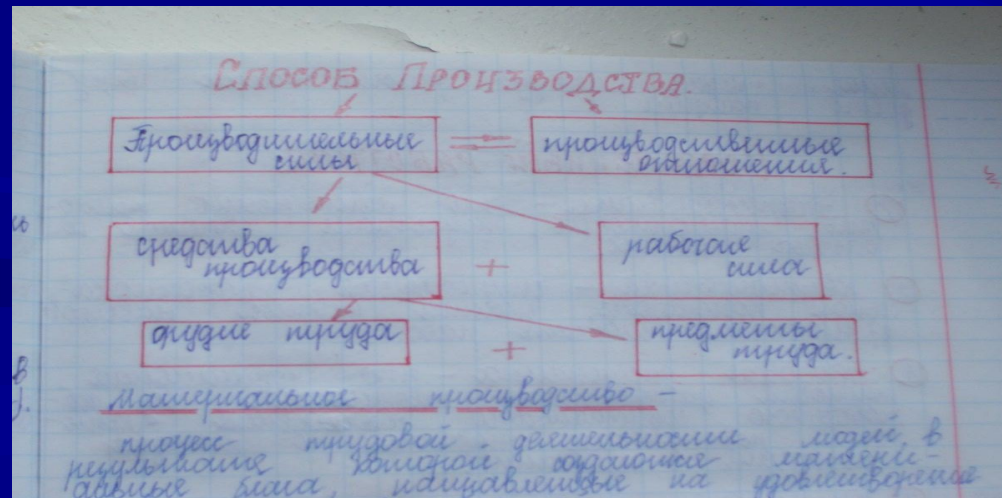 СПОСОБ ПРОИЗВОДСТВА.
Производительные
силы
производственные
отношения.
средства
производства
+
рабочая
сила
орудие труда
+
предметы
труда.
Материальное производство –
процесс трудовой деятельности людей, в
результате которой создаются матери-
альные блага, направленные на удовлетворение